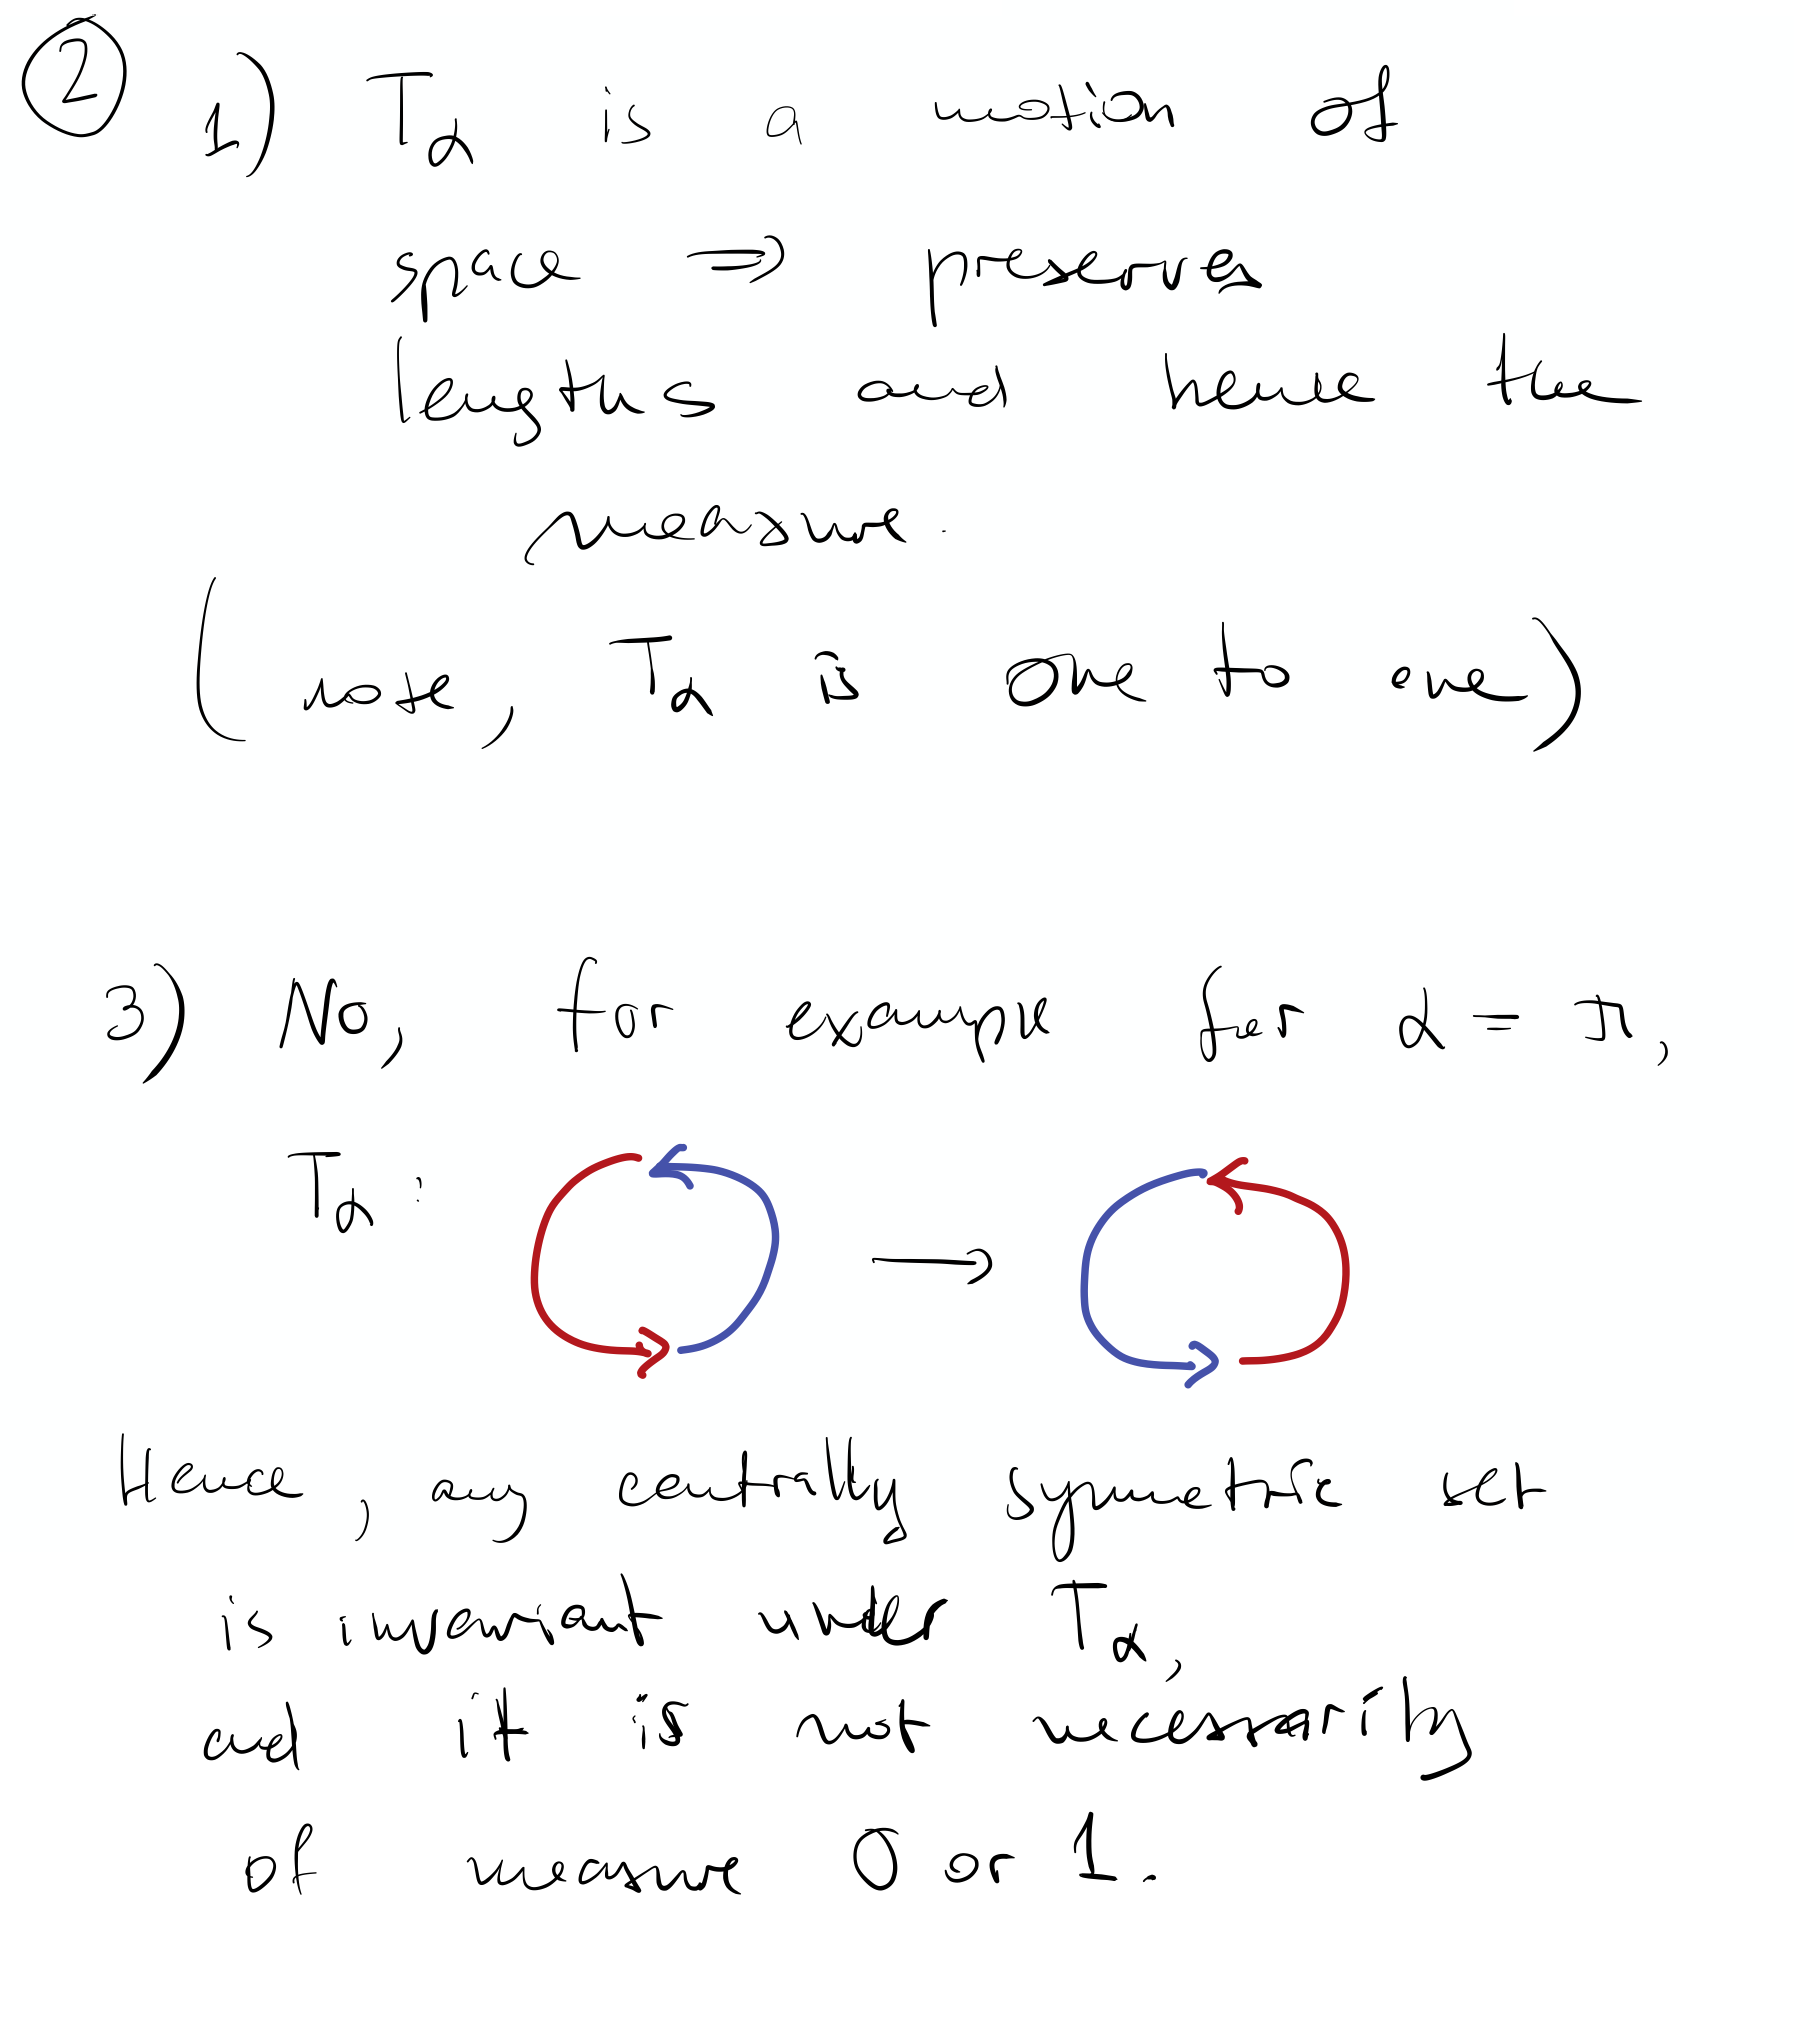 ② 1) T_α is a motion of
space ⇒ preserves
lengths and hence the
measure.
(note, T_α is one to one)
3) No, for example for α = π,
T_α : →
Hence, any centrally symmetric set
is invariant under T_α,
and it is not necessarily
of measure 0 or 1.